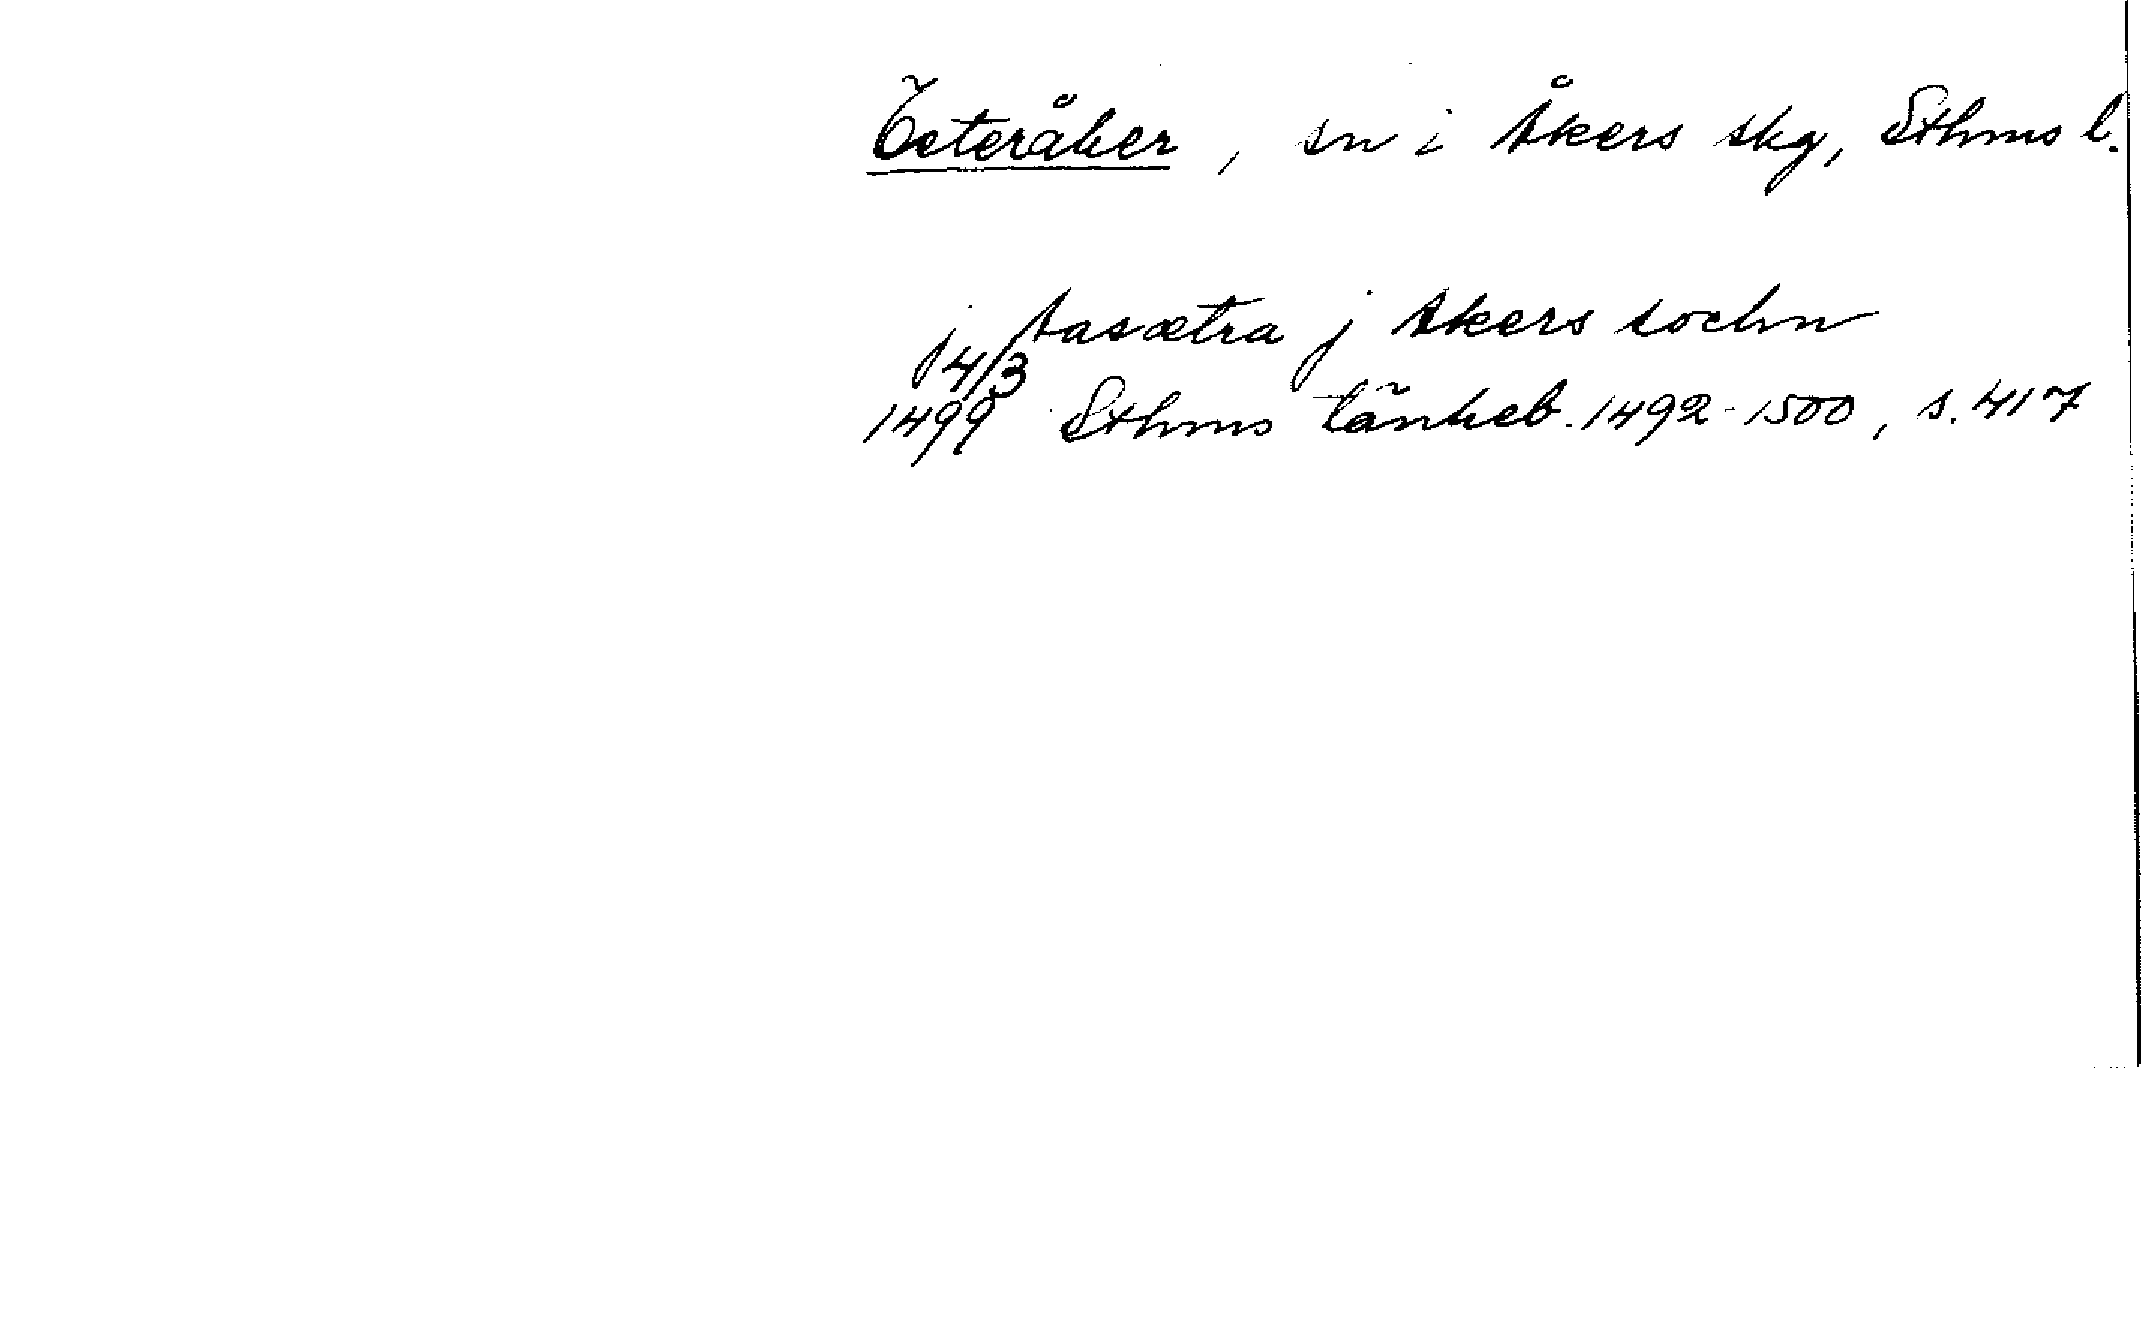 Österåker, sn i Åkers skg, Sthms l.
j Aasætra j Akers sochn
14/3
1499 Sthms tänkeb. 1492-1500, s. 417